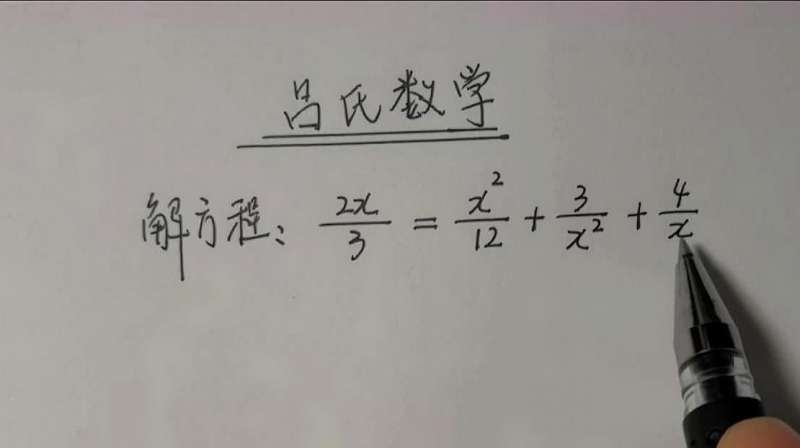 吕氏数学
解方程: 2x/3 = x²/12 + 3/x² + 4/x